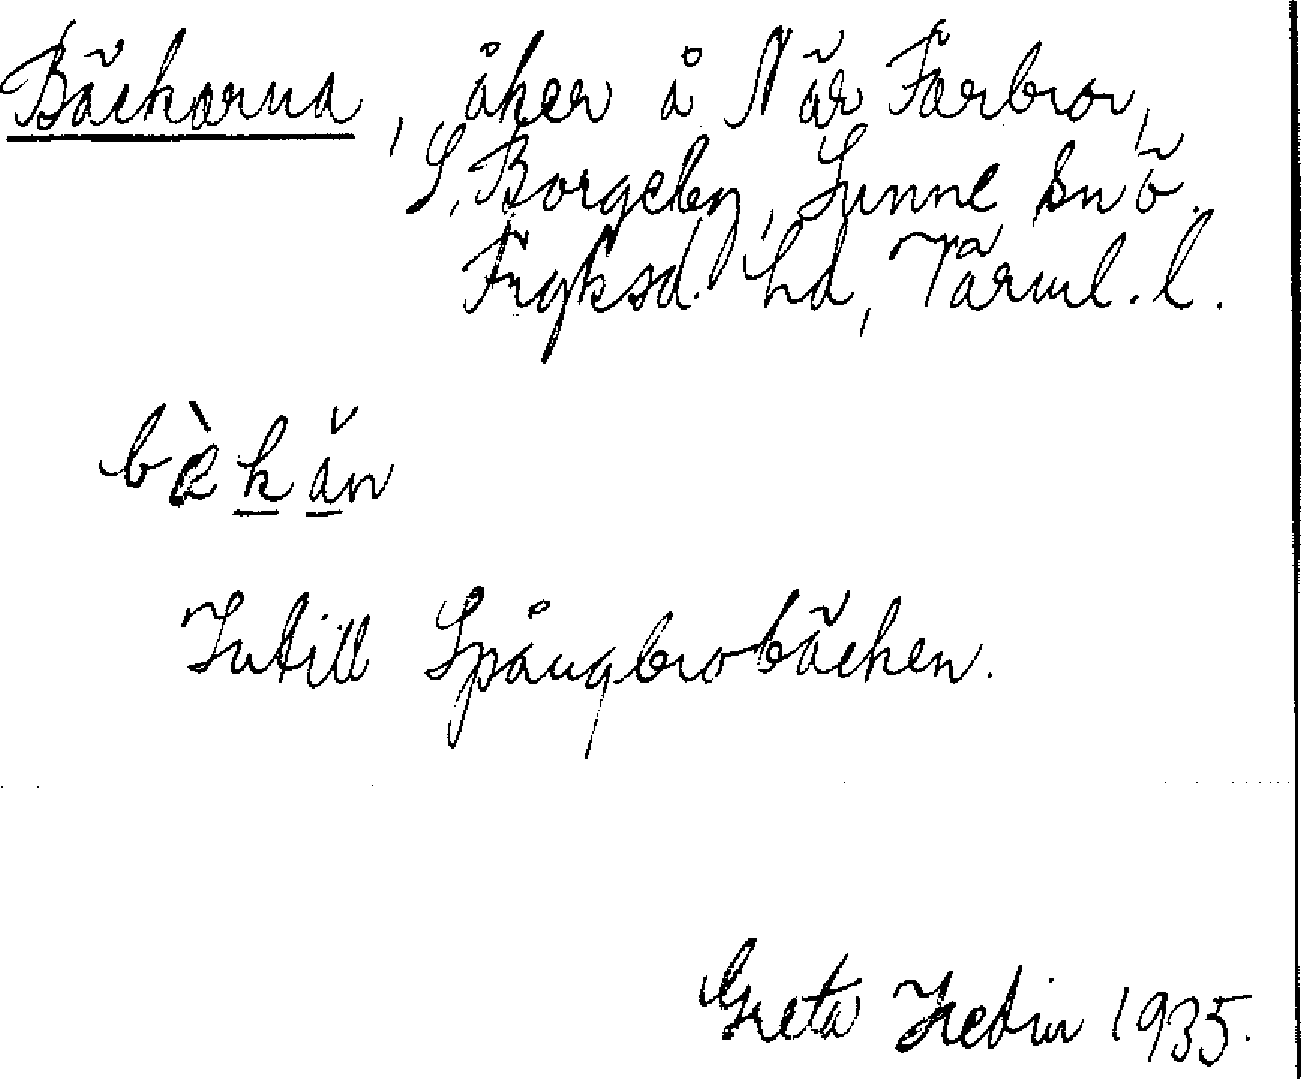 Bäckarna, åker å När Färbron,
S. Borgeby, Sunne sn ö.
Fryksd. hd, Värml. l.
bæ̀kǎn
Intill Spångbrobäcken.
Greta Hedin 1935.